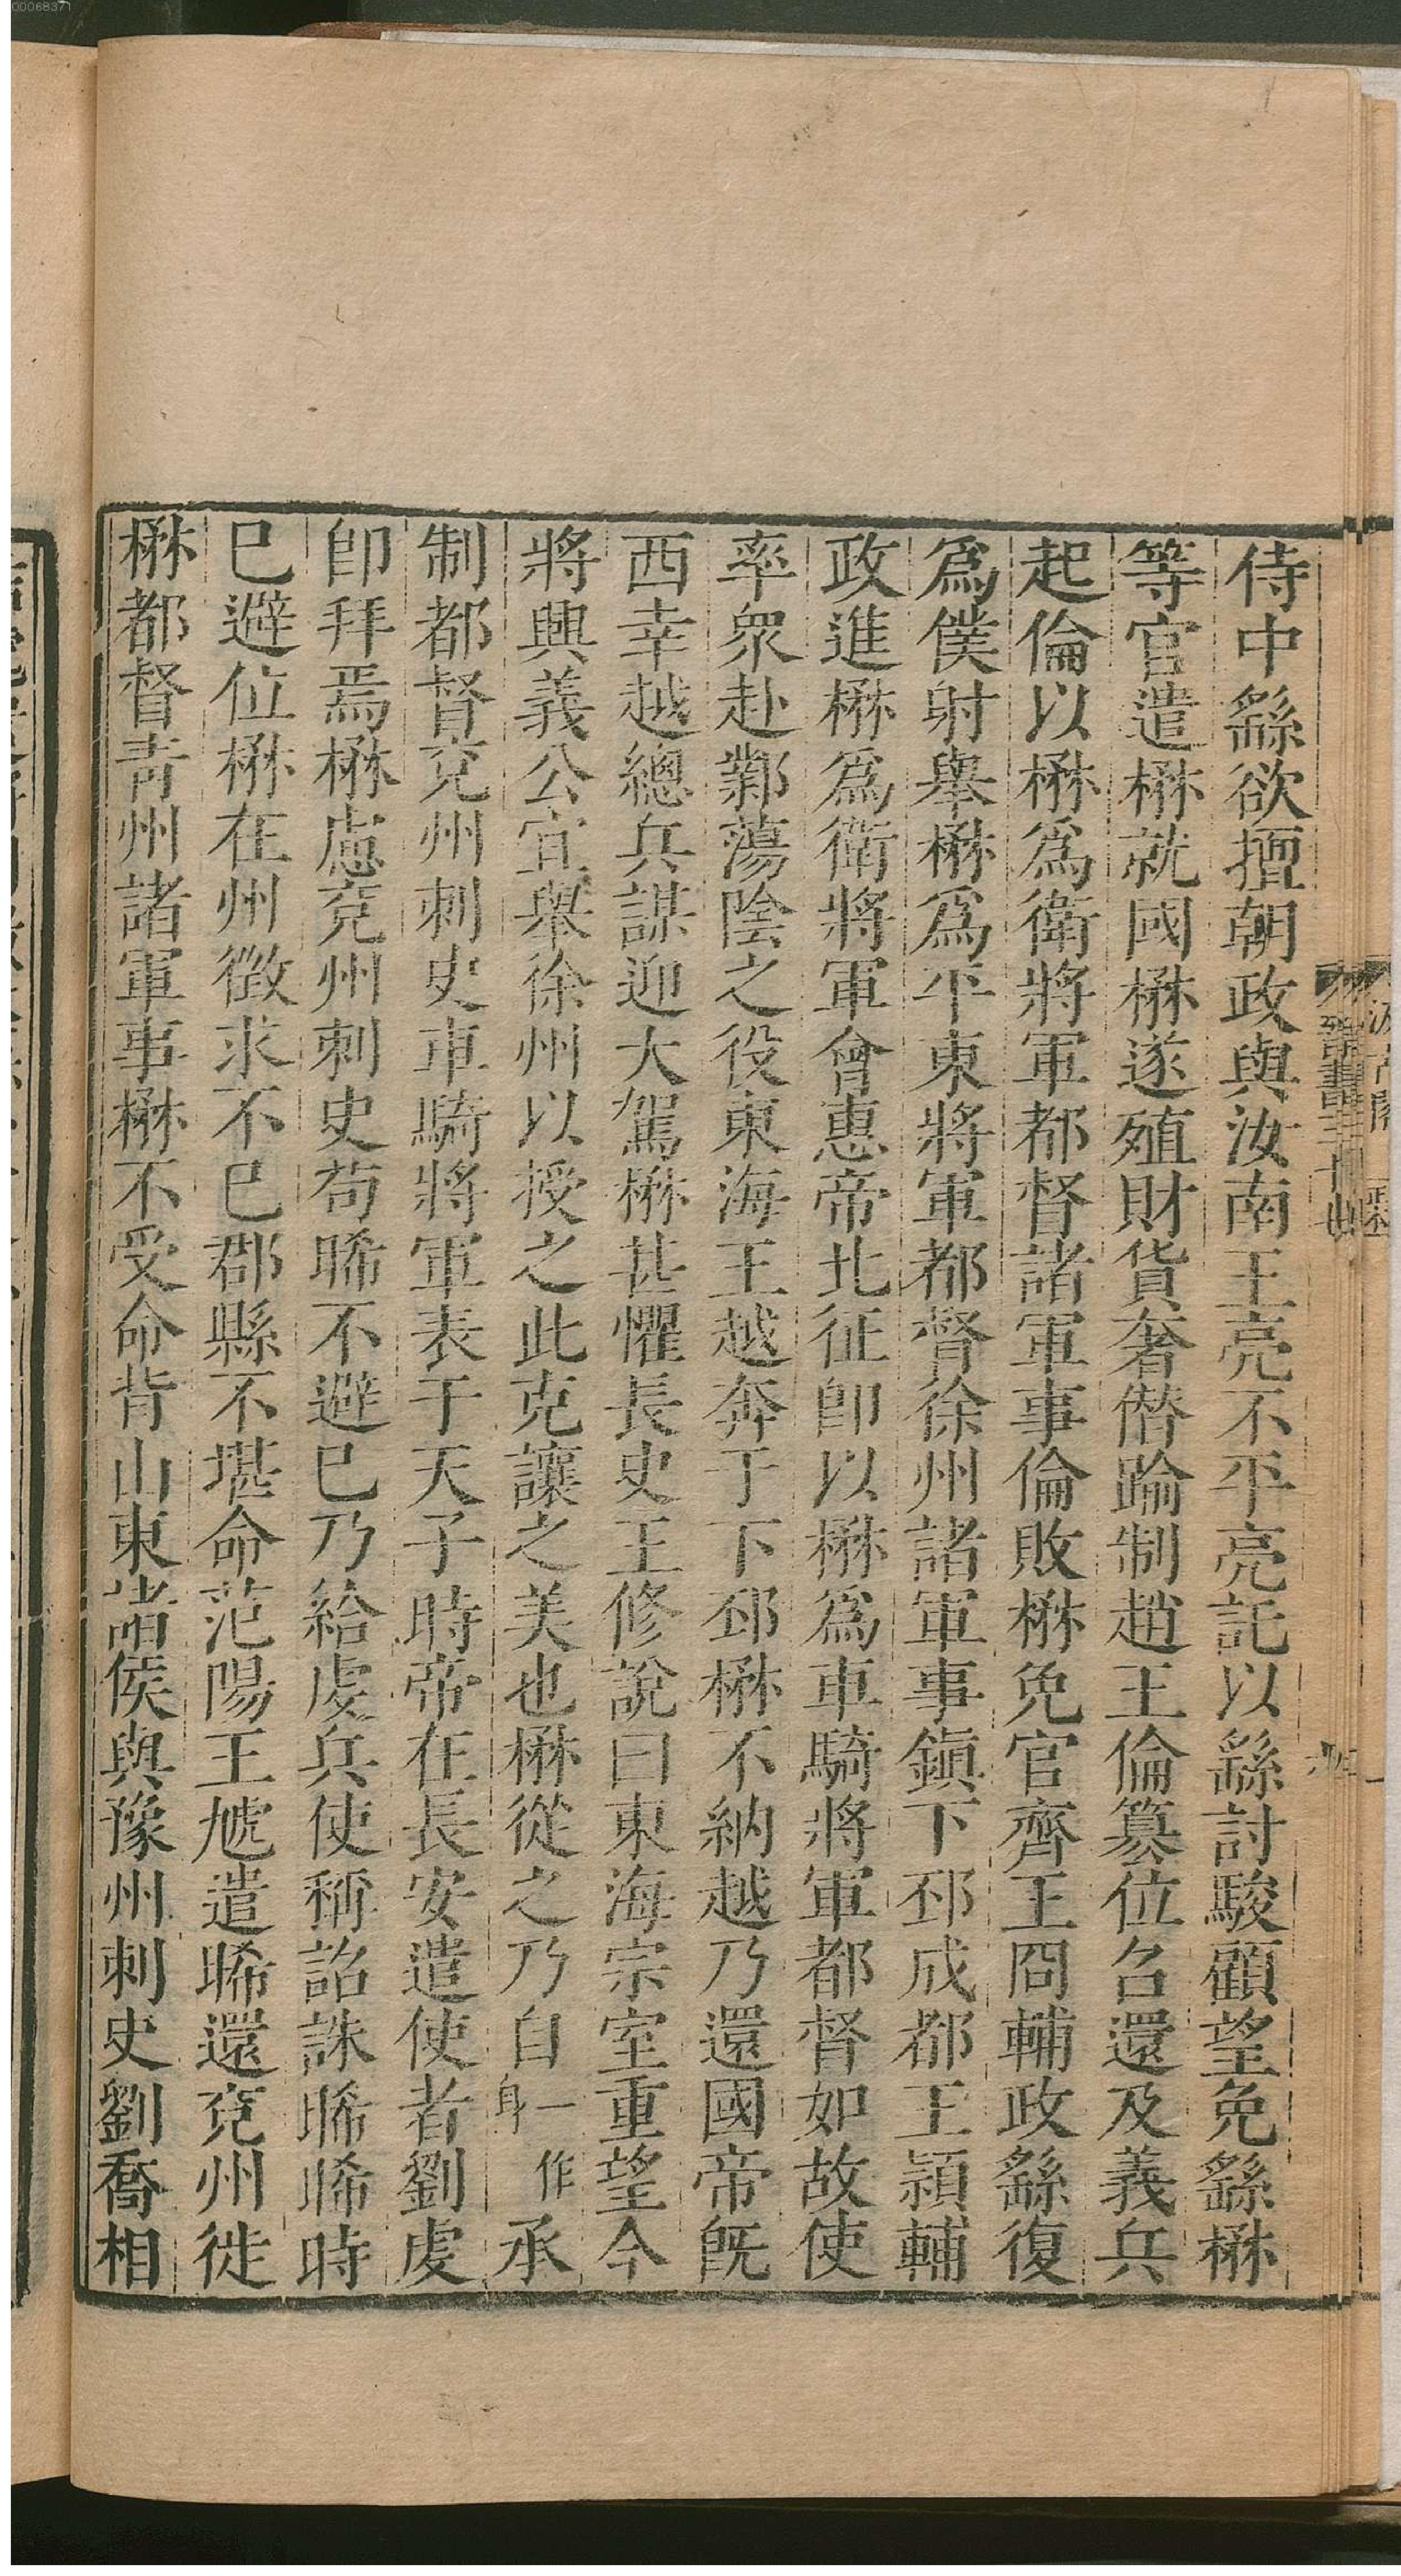 00068371
侍中繇欲擅朝政與汝南王亮不平亮託以繇討駿顧望免繇楙
等官遣楙就國楙遂殖財貨奢僭踰制趙王倫篡位召還及義兵
起倫以楙爲衛將軍都督諸軍事倫敗楙免官齊王冏輔政繇復
爲僕射舉楙爲平東將軍都督徐州諸軍事鎭下邳成都王頴輔
政進楙爲衛將軍會惠帝北征卽以楙爲車騎將軍都督如故使
率衆赴鄴蕩陰之役東海王越奔于下邳楙不納越乃還國帝旣
西幸越總兵謀迎大駕楙甚懼長史王修說曰東海宗室重望今
將興義公宜舉徐州以授之此克讓之美也楙從之乃自一作身承
制都督兗州刺史車騎將軍表于天子時帝在長安遣使者劉虔
卽拜焉楙慮兗州刺史苟晞不避已乃給虔兵使稱詔誅晞晞時
已避位楙在州徵求不已郡縣不堪命范陽王虓遣晞還兗州徙
楙都督靑州諸軍事楙不受命背山東諸侯與豫州刺史劉喬相